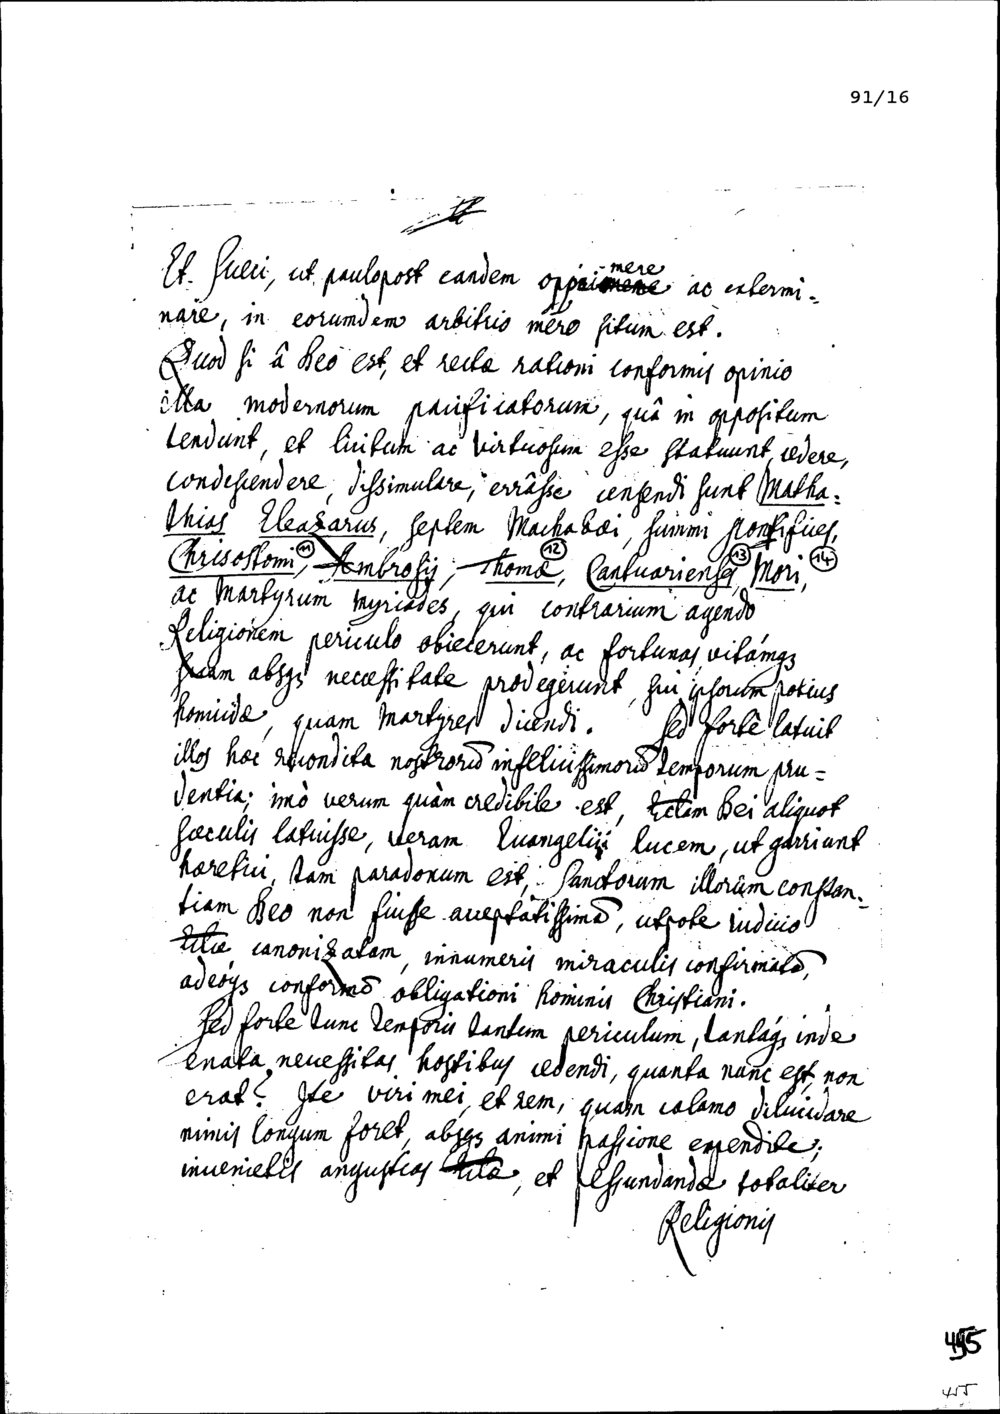 91/16
Et Sueci, ut paulopost eandem opprimere ac extermi=
nare, in eorumdem arbitrio mero situm est.
Quod si â Deo est, et rectæ rationi conformis opinio
illa modernorum pacificatorum, quâ in oppositum
tendunt, et licitum ac virtuosum esse statuunt, cedere,
condescendere, dissimulare, errâsse censendi sunt Matha=
thias Eleazarus, septem Machabæi, summi pontifices,
Chrisostomi, 11 Ambrosij, Thomæ, 12 Cantuarienses, 13 Mori, 14
ac Martyrum myriades, qui contrarium agendo
Religionem periculo obiecerunt, ac fortunas, vitámqз
suam absqз necessitate prodegerunt, sui ipsorum potius
homicidæ, quam Martyres dicendi. Sed fortè latuit
illos hæc recondita nostrorũ infelicissimorũ temporum pru=
dentia; imò verum quàm credibile est, Ecclam Dei aliquot
sæculis latuisse, veram Euangelij lucem, ut garriunt
hæretici, tam paradoxum est, Sanctorum illorum constan=
tiam Deo non fuisse acceptâtissimã, utpote iudicio
canonizatam, innumeris miraculis confirmatã,
adeóqз conformẽ obligationi hominis Christiani.
Sed forte tunc temporis tantum periculum, tantáqз inde
enata necessitas hostibus cedendi, quanta nunc est, non
erat? Ite viri mei, et rem, quam calamo dilucidare
nimis longum foret, absqз animi passione expendite;
invenietis angustias, et pessundandæ totaliter
Religionis
495
455